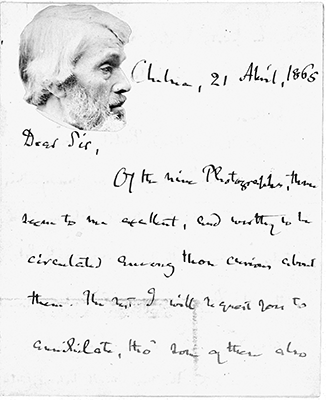 Chelsea, 21 April, 1865
Dear Sir,
Of the nine Photographs, three
seem to me excellent, and worthy to be
circulated among those curious about
them. The rest I will request you to
annihilate, tho' some of them also